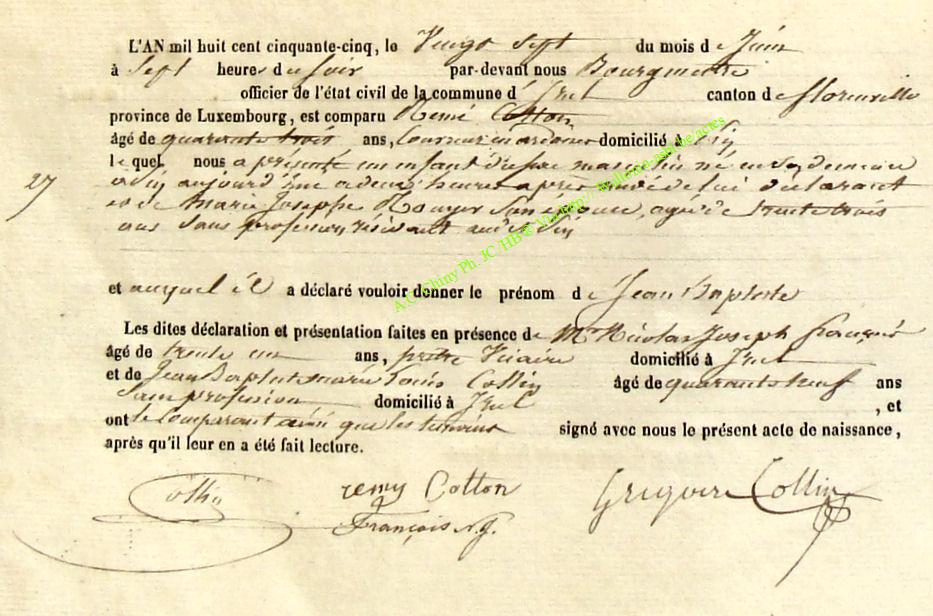 L'AN mil huit cent cinquante-cinq, le Vingt sept du mois de Juin
à Sept heures du Soir par-devant nous Bourgmestre
officier de l'état civil de la commune d' Izel canton de florenville
province de Luxembourg, est comparu Remi Cotton
âgé de quarante trois ans, Couvreur en ardoises domicilié à
le quel nous a présenté un enfant du sexe masculin né en sa demeure
27
aujourd'hui a deux heures après midi de lui déclarant
et de Marie Joseph Rouyer Son épouse, agée de trente trois
ans Sans profession, résidant audit
et auquel il a déclaré vouloir donner le prénom de Jean Baptiste
Les dites déclaration et présentation faites en présence de Mr Nicolas Joseph François
âgé de trente un ans, prêtre Vicaire domicilié à Izel
et de Jean Baptiste marie Louis Collin âgé de quarante neuf ans
Sans profession domicilié à Izel , et
ont le Comparant ainsi que les temoins signé avec nous le présent acte de naissance,
après qu'il leur en a été fait lecture.
Collin remy Cotton Grégoire Collin
François N.J.
A.C. Chiny Ph. JC /HB